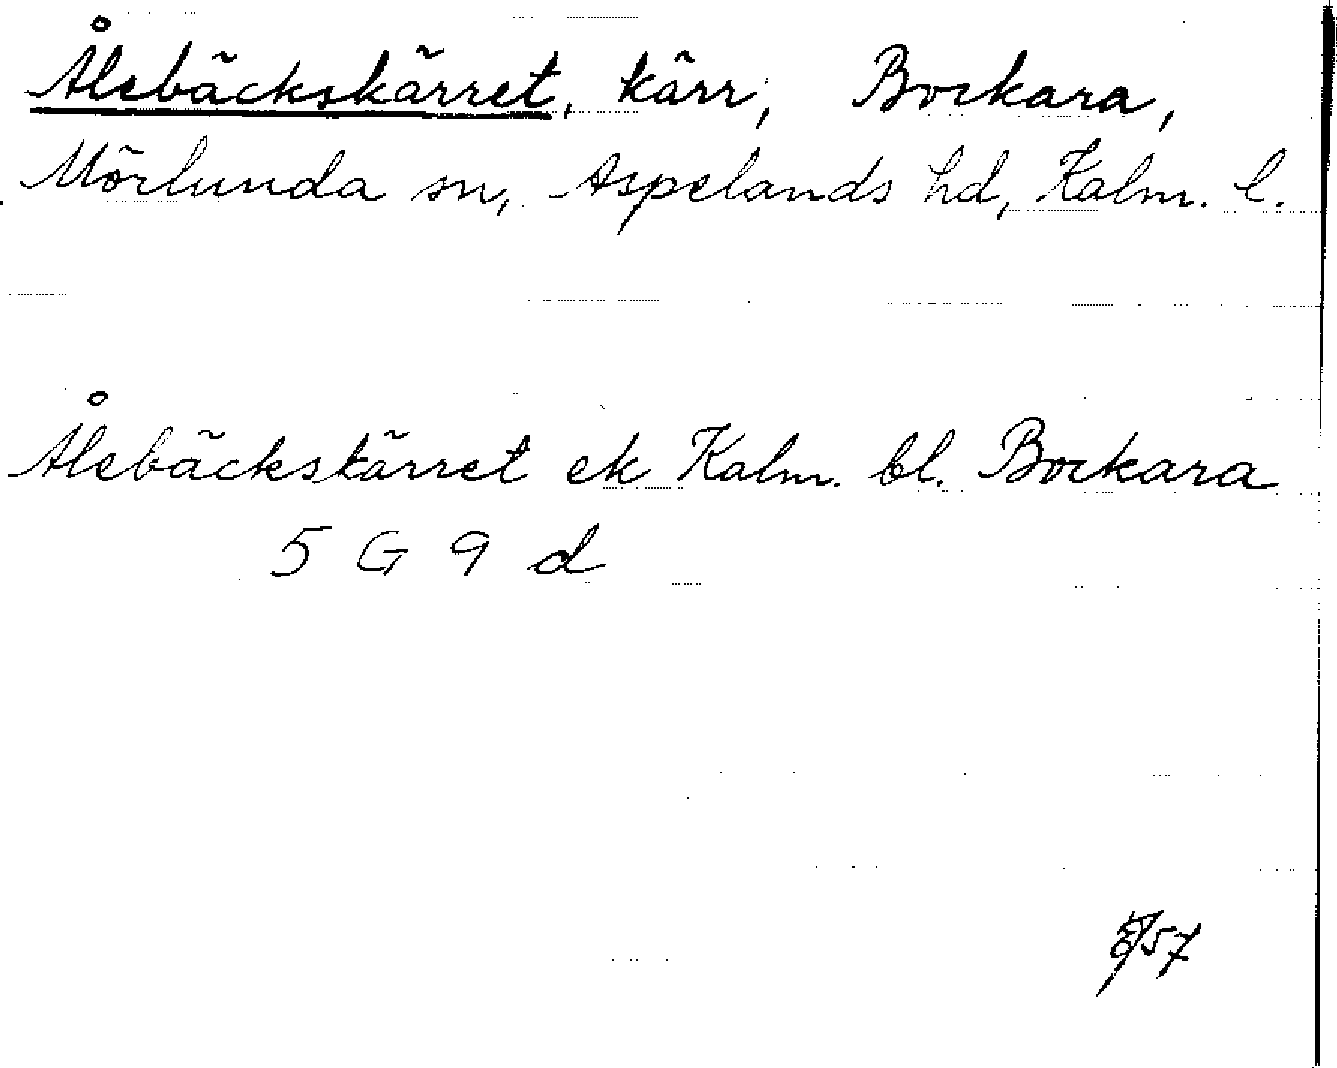 Ålebäckskärret, kärr, Bockara,
Mörlunda sn, Aspelands hd, Kalm. l.
Ålebäckskärret ek Kalm. bl. Bockara
5 G 9 d